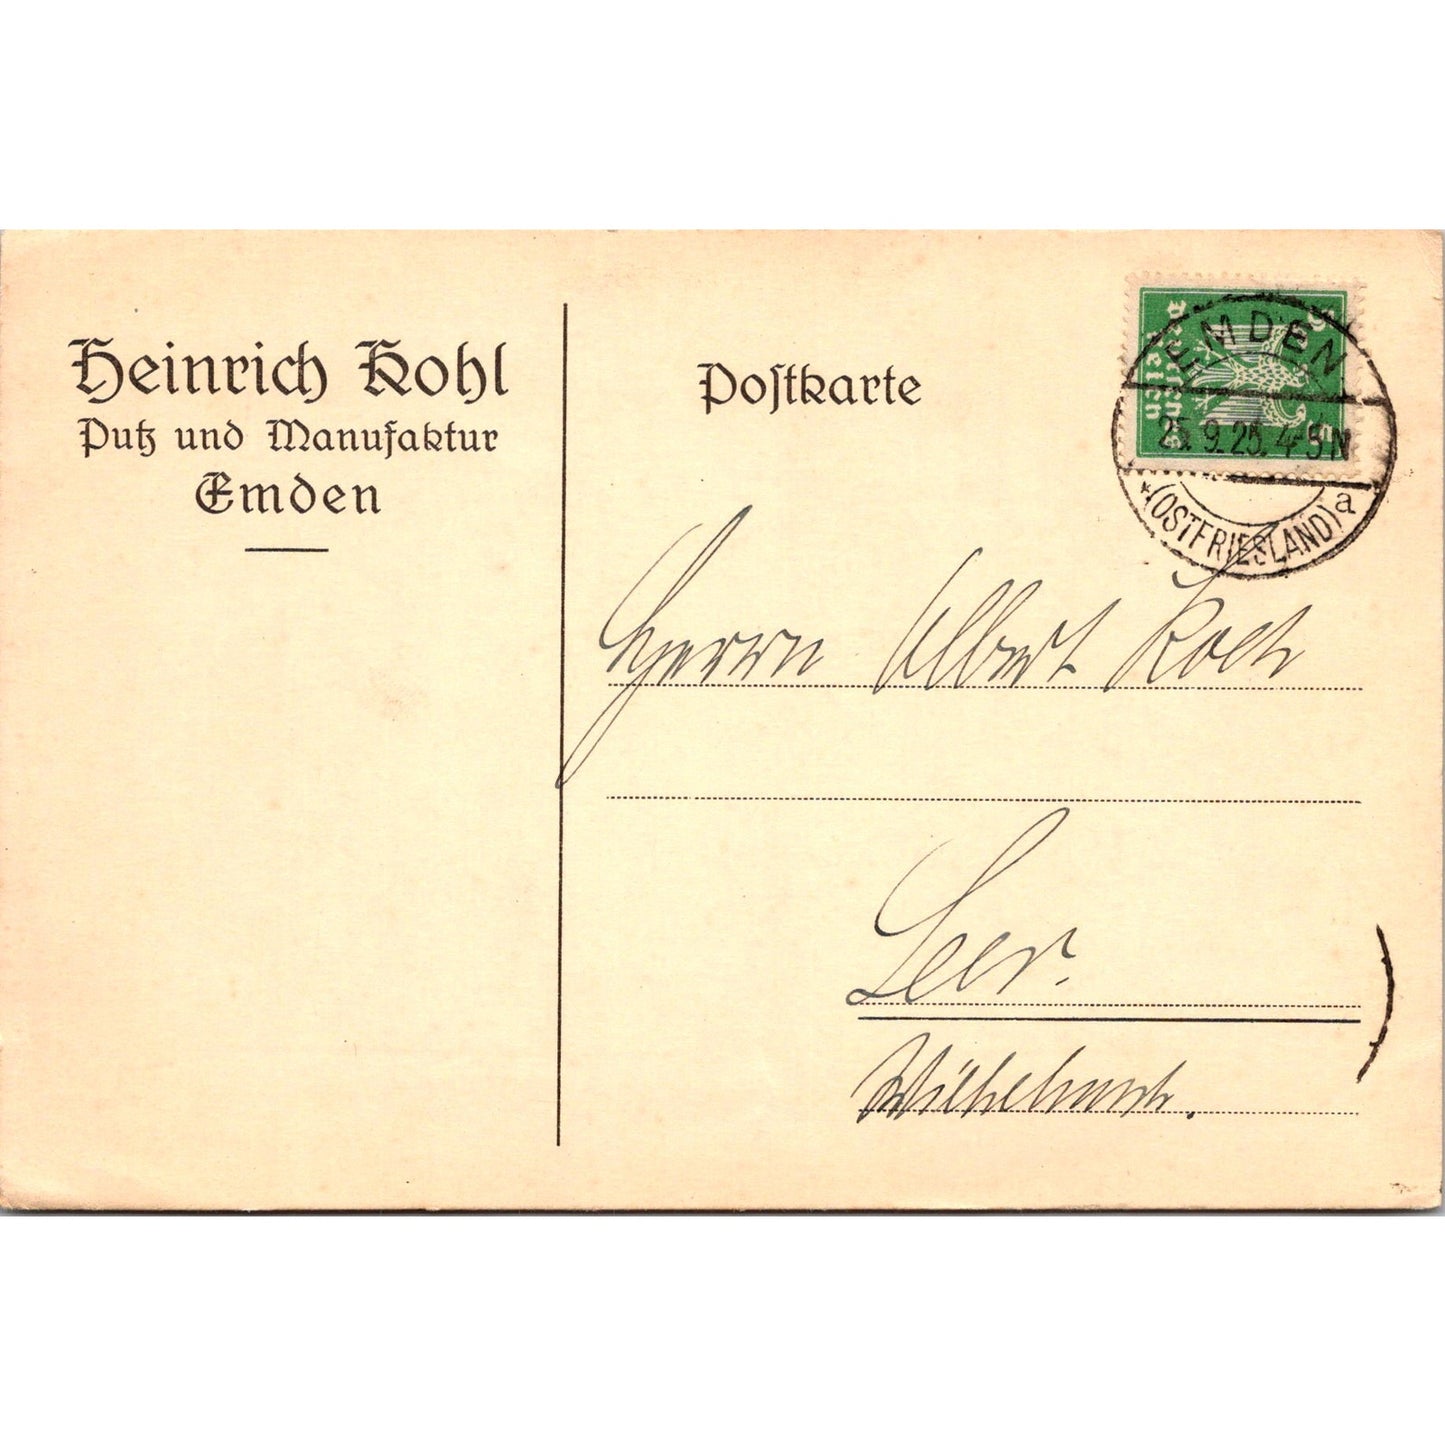 Heinrich Kohl
Putz und Manufaktur
Emden
Postkarte
Deutsches Reich
5
EMDEN
25.9.25. 4-5N
*(OSTFRIESLAND)a
Herrn Albert Koch
Leer.
Wilhelmstr.